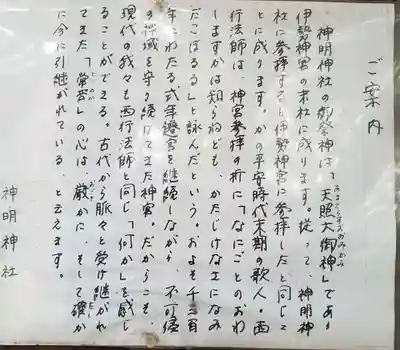 ご案内
神明神社の御祭神は「天照大御神」であり
あまてらすおおみかみ
伊勢神宮の末社に成ります。従って、神明神
社に参拝すると伊勢神宮に参拝したと同じこ
とに成ります。かの平安時代末期の歌人・西
行法師は、神宮参拝の折に「なにごとのおわ
しますかは知らねども、かたじけなさになみ
だこぼるる」と詠んだという。およそ千三百
年にわたる式年遷宮を継続しながら、不可侵
の禅域を守り続けてきた神宮。だからこそ、
現代の我々も西行法師と同じ「何か」を感じ
ることができる。古代から脈々と受け継がれ
てきた「常若」の心は、厳かに、そして確か
に今に引継がれている、と云えます。
神明神社